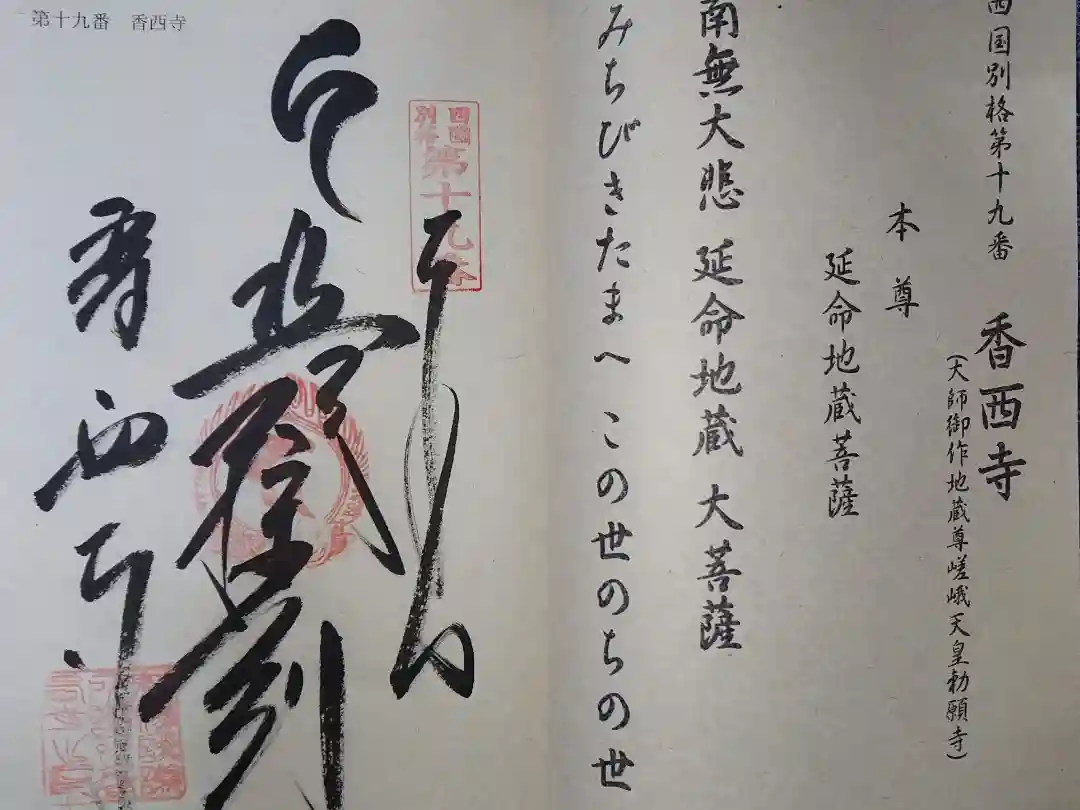 四国別格第十九番　香西寺
(大師御作地蔵尊嵯峨天皇勅願寺)
本尊
延命地蔵菩薩
南無大悲 延命地蔵 大菩薩
みちびきたまへ この世のちの世
第十九番　香西寺
四國別格第十九番
香西寺